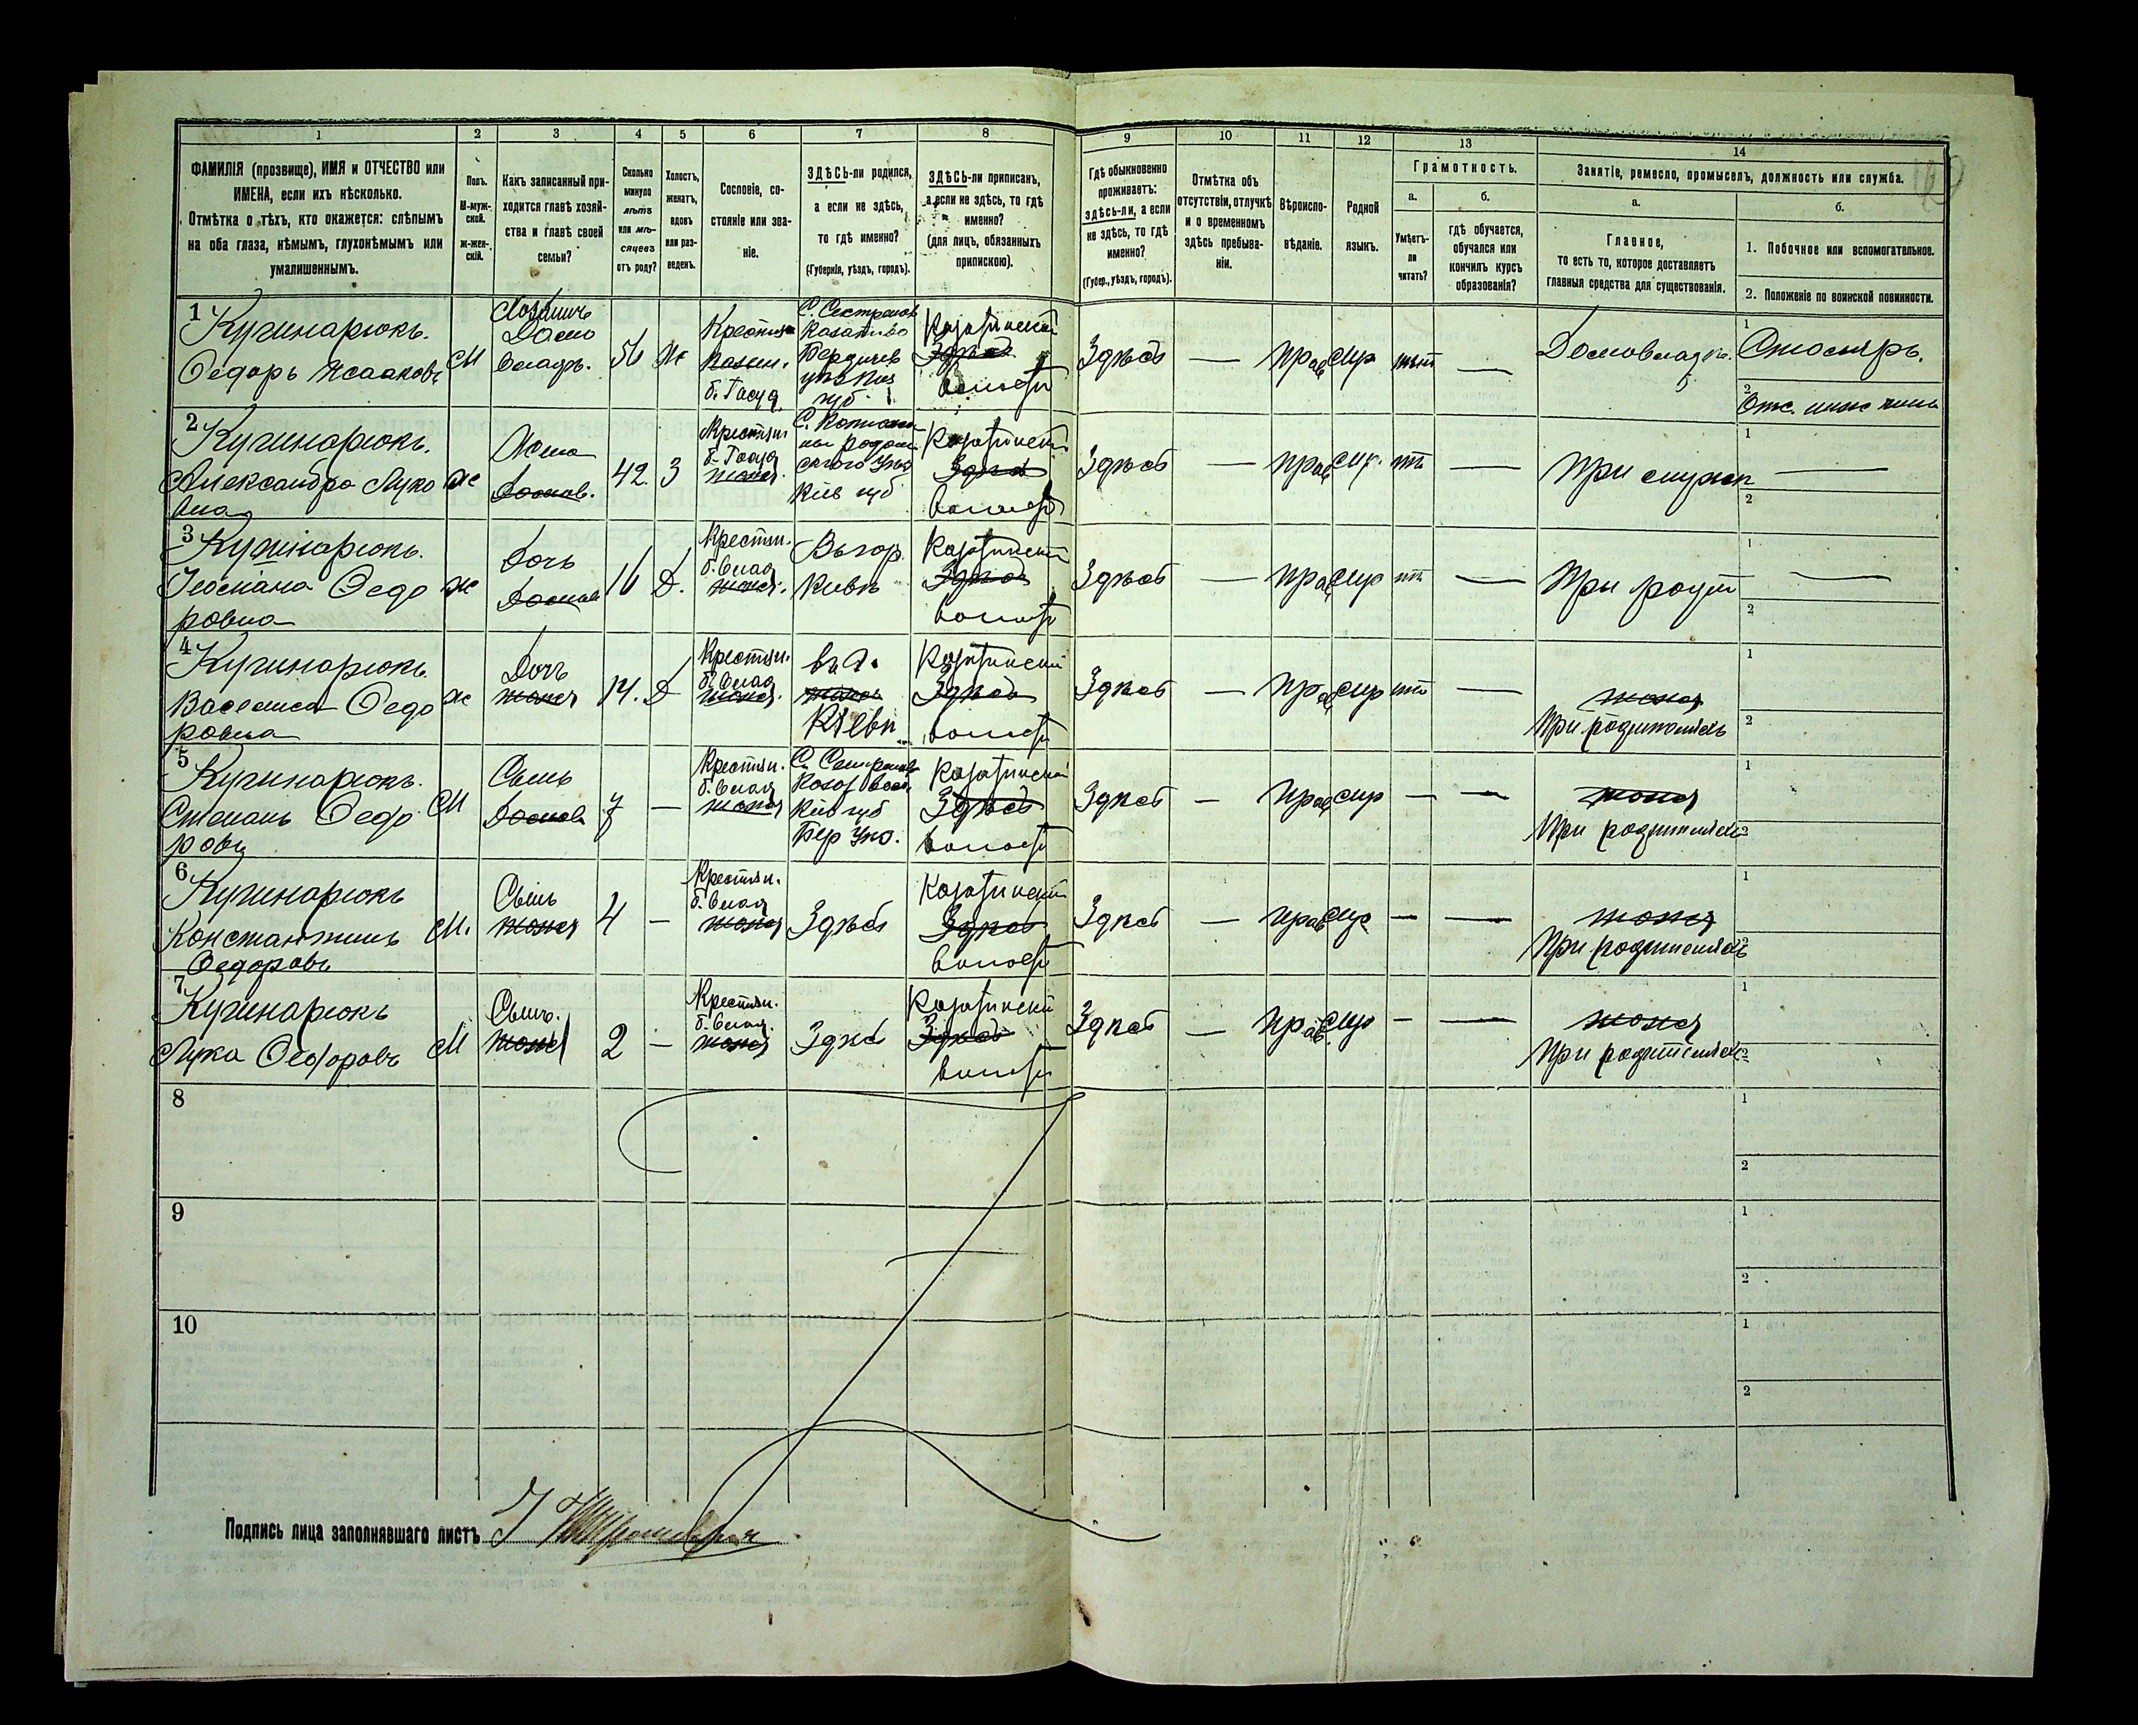 1 2 3 4 5 6 7 8 9 10 11 12 13 14
ФАМИЛІЯ (прозвище), ИМЯ и ОТЧЕСТВО или
ИМЕНА, если ихъ нѣсколько.
Отмѣтка о тѣхъ, кто окажется: слѣпымъ
на оба глаза, нѣмымъ, глухонѣмымъ или
умалишеннымъ.
Полъ.
М-муж-
ской.
Ж-жен-
скій.
Какъ записанный при-
ходится главѣ хозяй-
ства и главѣ своей
семьи?
Сколько
минуло
лѣтъ
или мѣ-
сяцевъ
отъ роду?
Холостъ,
женатъ,
вдовъ
или раз-
веденъ.
Сословіе, со-
стояніе или зва-
ніе.
ЗДѢСЬ-ли родился,
а если не здѣсь,
то гдѣ именно?
(Губернія, уѣздъ, городъ).
ЗДѢСЬ-ли приписанъ,
а если не здѣсь, то гдѣ
именно?
(для лицъ, обязанныхъ
припискою).
Гдѣ обыкновенно
проживаетъ:
здѣсь-ли, а если
не здѣсь, то гдѣ
именно?
(Губер., уѣздъ, городъ).
Отмѣтка объ
отсутствіи, отлучкѣ
и о временномъ
здѣсь пребыва-
ніи.
Вѣроиспо-
вѣданіе.
Родной
языкъ.
Грамотность.
а.
Умѣетъ-
ли
читать?
б.
гдѣ обучается,
обучался или
кончилъ курсъ
образованія?
Занятіе, ремесло, промыселъ, должность или служба.
а.
Главное,
то есть то, которое доставляетъ
главныя средства для существованія.
б.
1. Побочное или вспомогательное.
2. Положеніе по воинской повинности.
1
Кучинарюкъ.
Ѳедоръ Исааковъ
М
Хозяинъ
Домо
Владѣ.
56
Ж
Крестьян
б. Госуд.
Бердичев
губ
Козятинской
Здѣсь
волости
Здѣсь
—
прав
мр
—
Домовладѣл.
1
Столяръ.
2
2
Кучинарюкъ.
Александра Луко
вна
ж
Жена
42.
З
Крестьян
б. Госуд
тоже
Кіев губ
Козятинской
Здѣсь
волости
Здѣсь
—
прав
—
При мужѣ
1
—
2
3
Кучинарюкъ.
Ѳедо
ровна
ж
Дочь
16
Д.
Крестьян.
б. влад
тоже.
Въ гор.
Кіевѣ
Козятинской
Здѣсь
волости
Здѣсь
—
прав
—
При родит
1
—
2
4
Кучинарюкъ.
Василиса Ѳедо
ровна
ж
Дочь
тоже
14.
Д
Крестьян.
б. влад
тоже.
въ г.
тоже
Кіевѣ
Козятинской
Здѣсь
волости
Здѣсь
—
прав
—
тоже
При родителяхъ
1
2
5
Кучинарюкъ.
Степанъ Ѳедо
ровъ
М
Сынъ
7
—
Крестьян.
б. влад
тоже
Кіев губ
Бер Уѣз.
Козятинской
Здѣсь
волости
Здѣсь
—
прав
— —
тоже
При родителяхъ
1
2
6
Кучинарюкъ
Константинъ
Ѳедоровъ
М.
Сынъ
тоже
4
—
Крестьян.
б. влад
тоже
Здѣсь
Козятинской
Здѣсь
волости
Здѣсь
—
прав
— —
тоже
При родителяхъ
1
2
7
Кучинарюкъ
Лука Ѳедоровъ
М
Сынъ.
тоже
2
—
Крестьян.
б. влад.
тоже
Здѣсь
Козятинской
Здѣсь
волости
Здѣсь
—
прав.
— —
тоже
При родителяхъ
1
2
8
1
2
9
1
2
10
1
2
Подпись лица заполнявшаго листъ